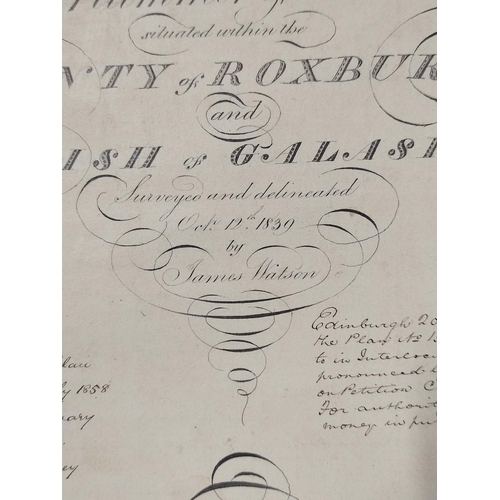 situated within the
NTY of ROXBUR
and
ISH of GALASH
Surveyed and delineated
Octr 12th 1839
by
James Watson
Edinburgh 20
the Plan No 1
to in Interloc
pronounced
on Petition C
For authorit
money in pu
lau
ly 1858
uary
ey